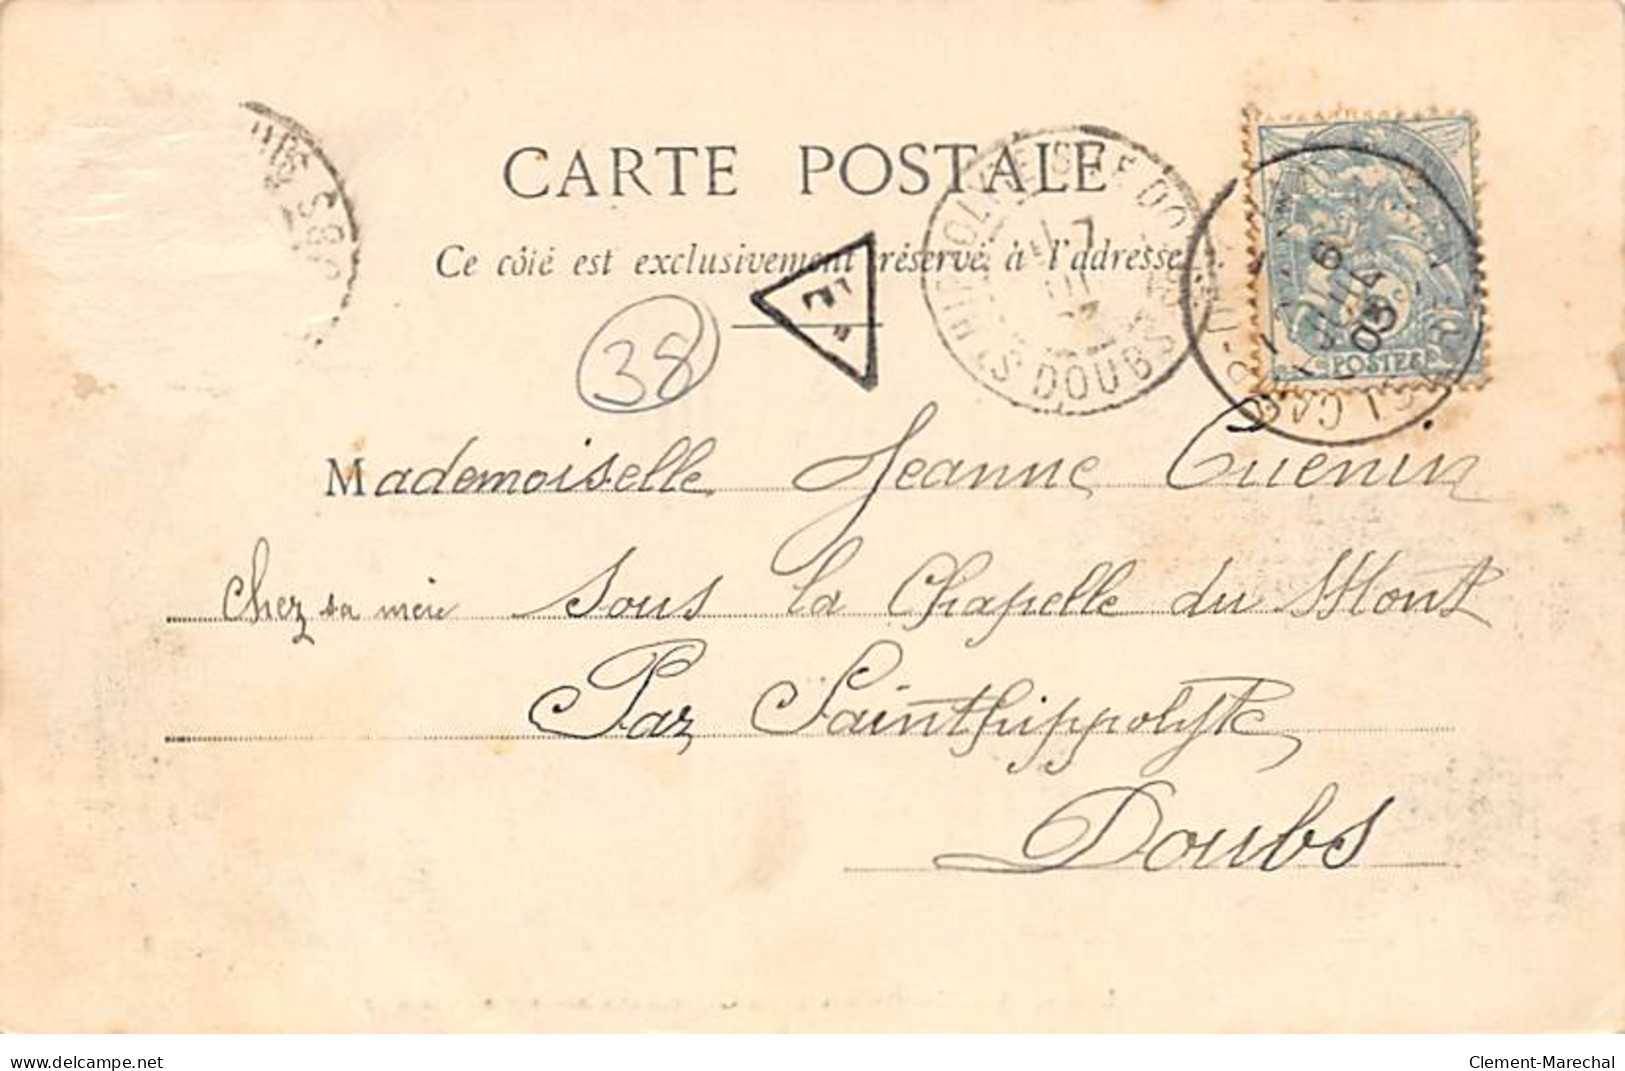 CARTE POSTALE
Ce côté est exclusivement réservé à l'adresse
38
DOUBS
6
05
POSTES
Mademoiselle Jeanne Cuenin
chez sa mère Sous la Chapelle du Mont
Par Sainthippolyte
Doubs
www.delcampe.net
Clement-Marechal